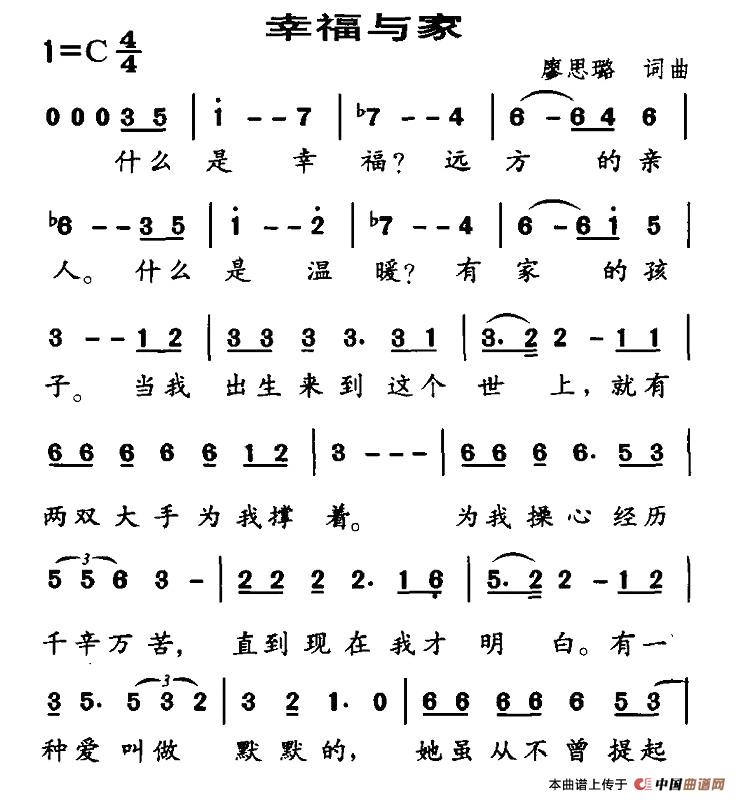 幸福与家
1=C 4/4
廖思璐 词曲
0 0 0 3 5 | i - - 7 | ♭7 - - 4 | 6 - 6 4 6 |
什么是 幸 福？远 方 的亲
♭6 - - 3 5 | i - - 2 | ♭7 - - 4 | 6 - 6 i 5 |
人。什么是 温 暖？有 家 的孩
3 - - 1 2 | 3 3 3 3. 3 1 | 3. 2 2 - 1 1 |
子。当我 出生来到这个 世 上，就有
6 6 6 6 6 1 2 | 3 - - - | 6 6 6 6. 5 3 |
两双大手为我撑 着。 为我操心经历
5 5 6 3 - | 2 2 2 2. 1 6 | 5. 2 2 - 1 2 |
3
千辛万苦，直到现在我才 明 白。有一
3 5. 5 3 2 | 3 2 1. 0 | 6 6 6 6 6 5 3 |
3
种爱叫做 默默的，她虽从不曾提起
本曲谱上传于 中国曲谱网